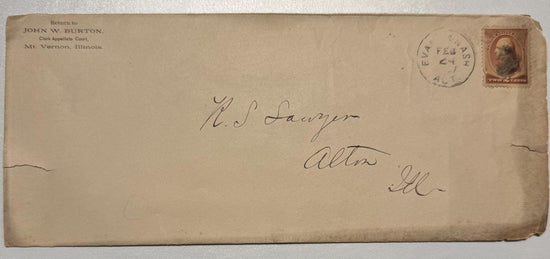 Return to
JOHN W. BURTON,
Clerk Appellate Court,
Mt. Vernon, Illinois
EVA NASH
FEB
24
TWO CENTS
Sawyer
Alton
Ill